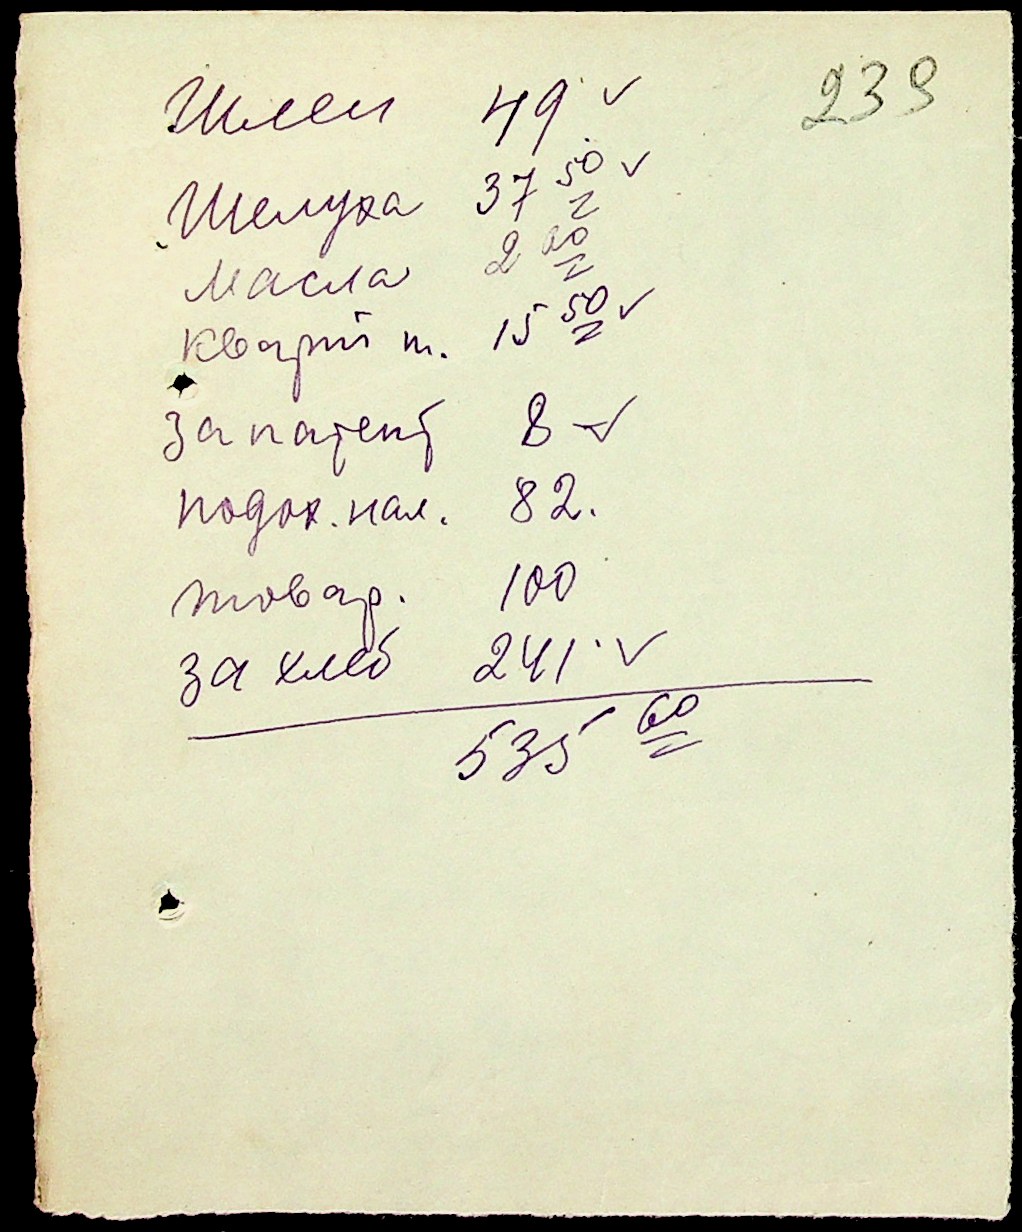 239
Шлеи 49 ✓
Шелуха 37 50 ✓
Масла 2 60
Кварт п. 15 50 ✓
За патент 8 - ✓
подох. нал. 82.
товар. 100
за хлеб 241. ✓
535 60